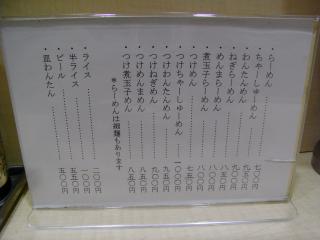 ・らーめん………………七〇〇円
・ちゃーしゅーめん………九五〇円
・わんたんめん…………九〇〇円
・ねぎらーめん…………
・めんまらーめん…………
・煮玉子らーめん…………八〇〇円
・つけめん………………七五〇円
・つけちゃーしゅーめん…一〇〇〇円
・つけわんたんめん………九五〇円
・つけねぎめん…………
・つけめんまめん…………八五〇円
・つけ煮玉子めん…………八五〇円
※らーめんは細麺もあります
・ライス………………二〇〇円
・半ライス………………一〇〇円
・ビール………………五五〇円
・皿わんたん……………五〇〇円